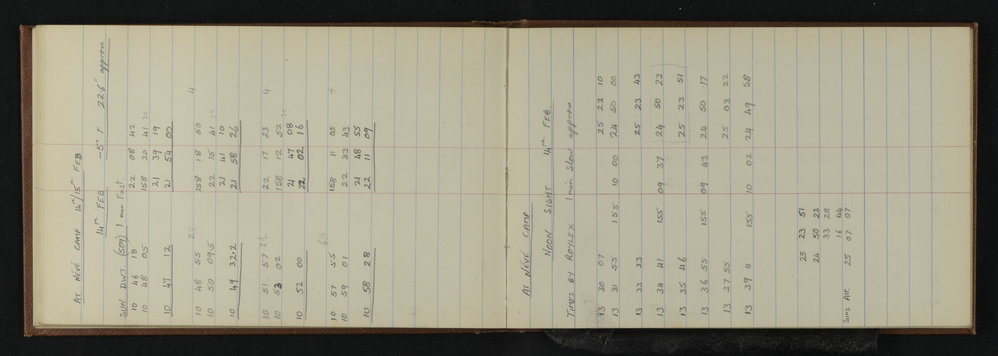 AT NÉVÉ CAMP 14th/15th FEB
14th FEB -5°F 22.6" approx
SUN DWT (509) 1 min Fast
10 46 18 22 08 42
10 48 05 158 20 41 30
21 39 19
10 47 12 21 54 00
10 48 55 2½ 158 18 50 4
10 50 09.5 22 15 41
21 41 10
10 49 32.2 21 58 26
10 51 57 2½ 22 17 23 4
10 53 02 158 12 52
21 47 08
10 52 00 22 02 16
10 57 55 158 11 05
10 59 01 22 33 43
21 48 55
10 58 28 22 11 09
AT NÉVÉ CAMP
NOON SIGHT 14th FEB
TIMES BY ROLEX 1 min Slow approx
13 30 07 25 23 10
13 31 55 155 10 00 24 50 00
13 33 33 25 23 43
13 34 41 155 09 37 24 50 23
13 35 46 25 23 51
13 36 55 155 09 43 24 50 17
13 37 55 25 03 22
13 39 11 155 10 02 24 49 58
25 23 51
24 50 23
33 28
16 44
SUNS Alt. 25 07 07